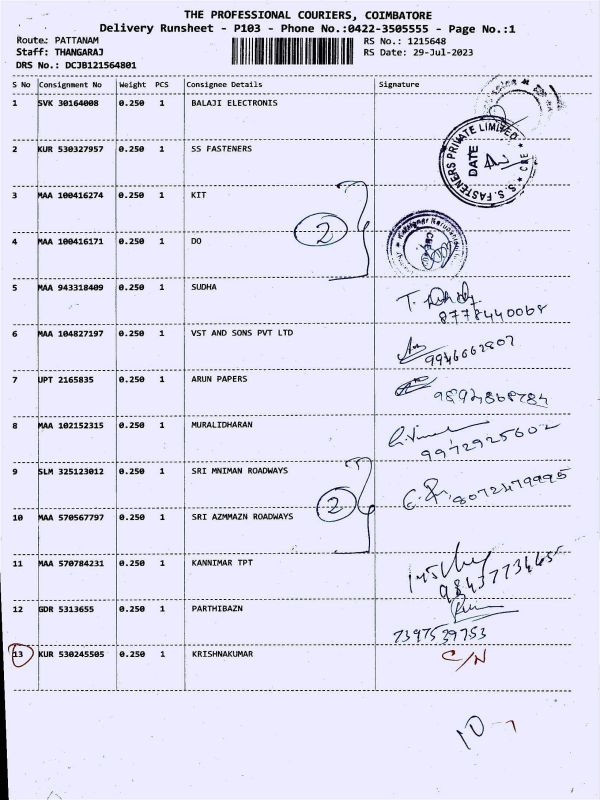 THE PROFESSIONAL COURIERS, COIMBATORE
Delivery Runsheet - P103 - Phone No.:0422-3505555 - Page No.:1
Route: PATTANAM RS No.: 1215648
Staff: THANGARAJ RS Date: 29-Jul-2023
DRS No.: DCJB121564801
S No Consignment No Weight PCS Consignee Details Signature
1 SVK 30164008 0.250 1 BALAJI ELECTRONIS
2 KUR 530327957 0.250 1 SS FASTENERS
S. S. FASTENERS PRIVATE LIMITED * CBE *
DATE
3 MAA 100416274 0.250 1 KIT
2
4 MAA 100416171 0.250 1 DO
5 MAA 943318409 0.250 1 SUDHA
8778440068
6 MAA 104827197 0.250 1 VST AND SONS PVT LTD
9946662807
7 UPT 2165835 0.250 1 ARUN PAPERS
9894868784
8 MAA 102152315 0.250 1 MURALIDHARAN
9972925602
9 SLM 325123012 0.250 1 SRI MNIMAN ROADWAYS
8072479995
2
10 MAA 570567797 0.250 1 SRI AZMMAZN ROADWAYS
11 MAA 570784231 0.250 1 KANNIMAR TPT
9843773465
12 GDR 5313655 0.250 1 PARTHIBAZN
7397539753
13 KUR 530245505 0.250 1 KRISHNAKUMAR C/N
10